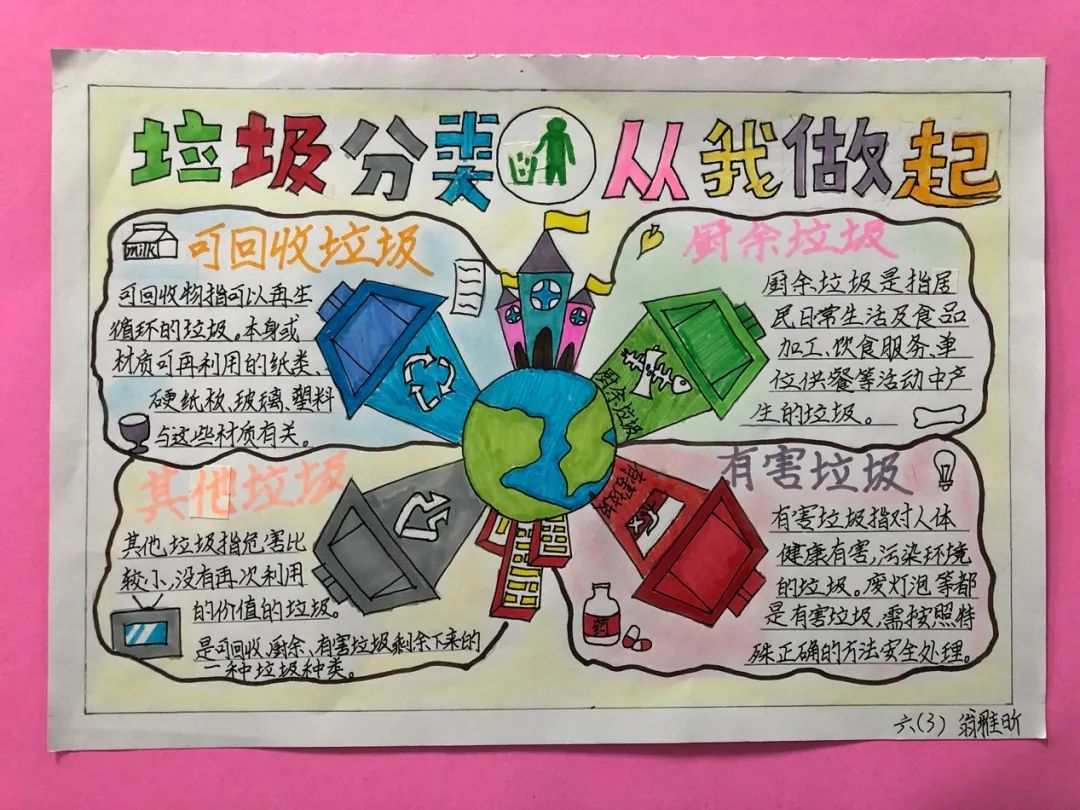 垃圾分类 从我做起
milk
可回收垃圾
可回收物指可以再生
循环的垃圾。本身或
材质可再利用的纸类、
硬纸板、玻璃、塑料
与这些材质有关。
厨余垃圾
厨余垃圾是指居
民日常生活及食品
加工、饮食服务、单
位供餐等活动中产
生的垃圾。
厨余垃圾
其他垃圾
其他垃圾指危害比
较小,没有再次利用
的价值的垃圾。
是可回收、厨余、有害垃圾剩余下来的
一种垃圾种类。
有害垃圾
有害垃圾
有害垃圾指对人体
健康有害,污染环境
的垃圾。废灯泡等都
是有害垃圾,需按照特
殊正确的方法安全处理。
药
六(3) 翁雅昕